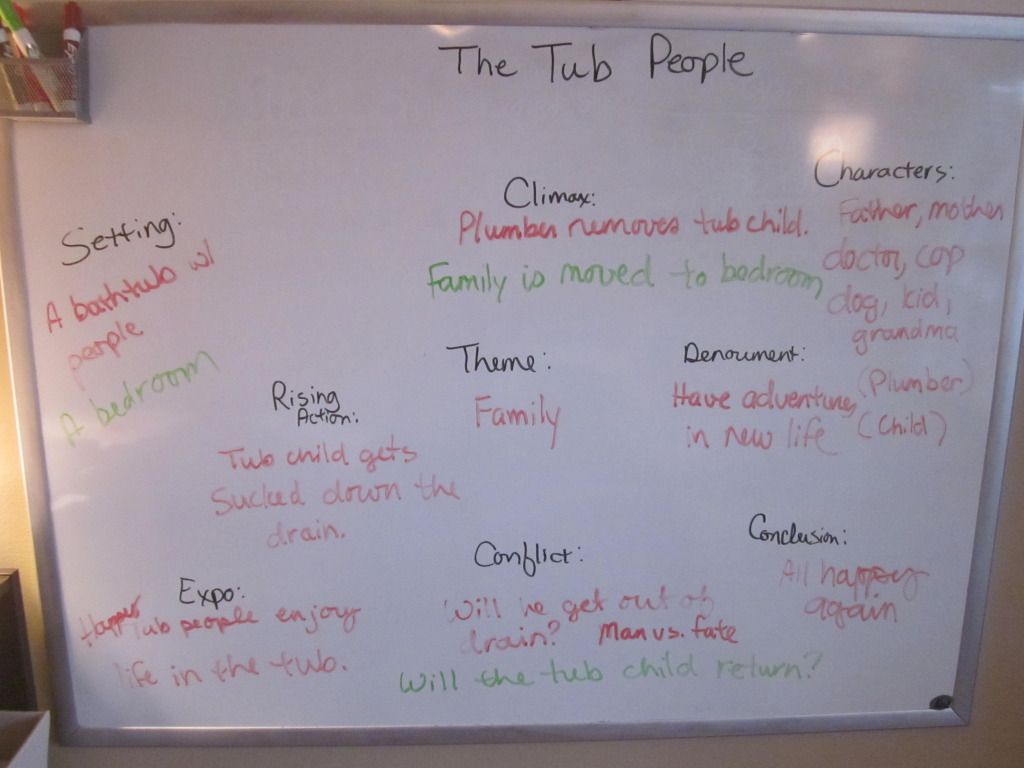 The Tub People
Setting:
A bathtub w/
people
A bedroom
Climax:
Plumber removes tub child.
Family is moved to bedroom
Characters:
Father, mother
doctor, cop
dog, kid,
grandma
(Plumber)
(Child)
Rising
Action:
Tub child gets
Sucked down the
drain.
Theme:
Family
Denoument:
Have adventures
in new life
Expo:
Happy Tub people enjoy
life in the tub.
Conflict:
Will he get out of
drain? Man vs. fate
Will the tub child return?
Conclusion:
All happy
again